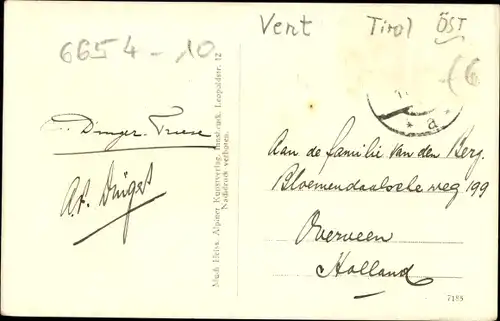 Vent Tirol ÖST
6654 - 10
a
Aan de familie van den Berg.
Bloemendaalsche weg 199
Overveen
Holland
Much Heiss, Alpiner Kunstverlag, Innsbruck, Leopoldstr. 12
Nachdruck verboten.
7188